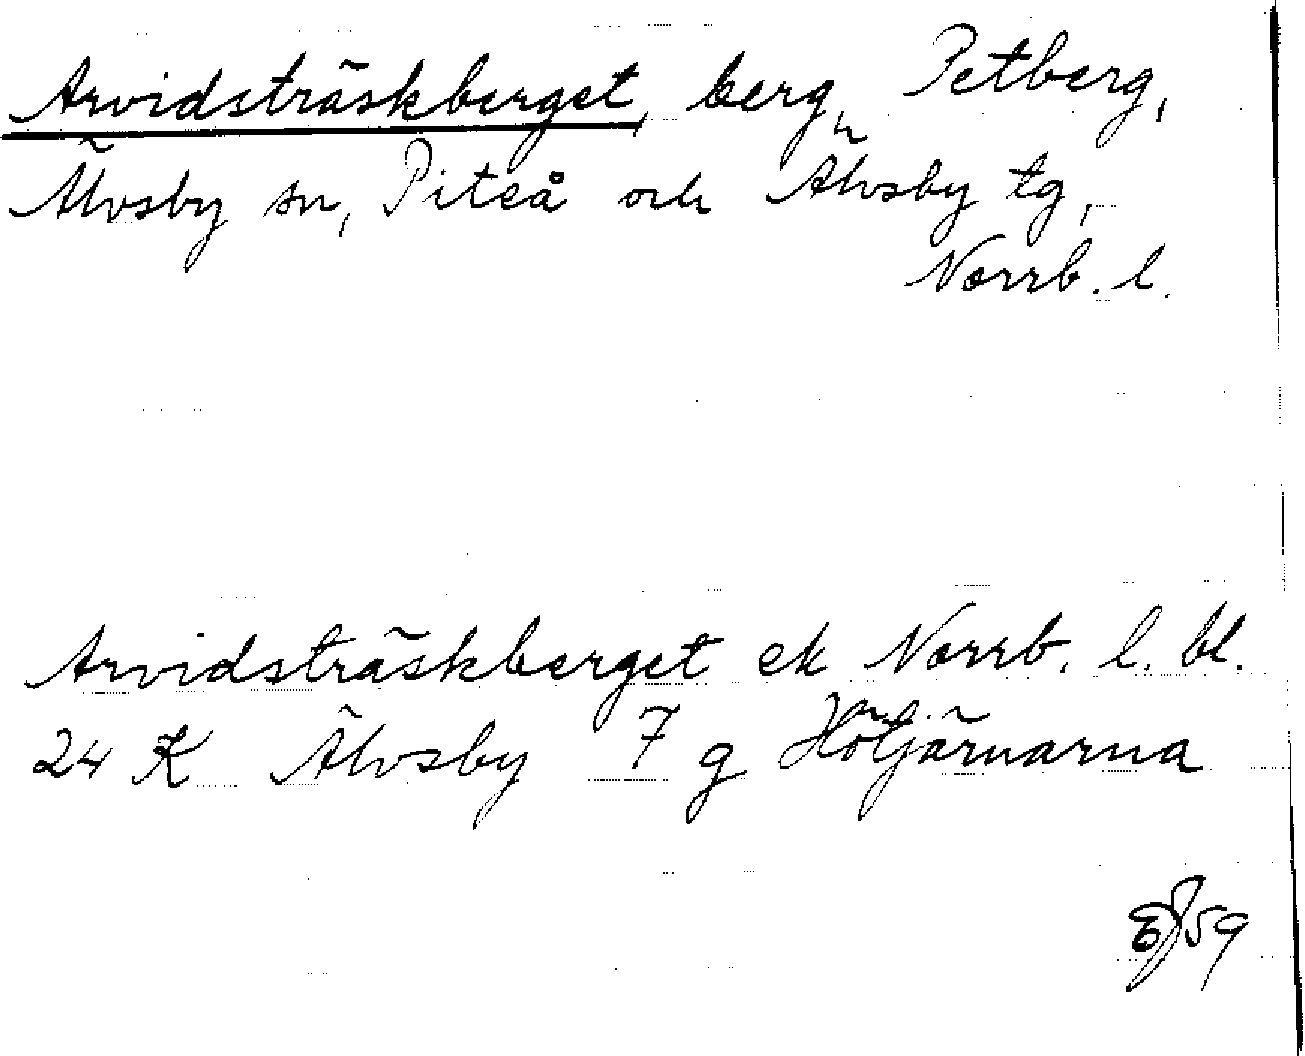 Arvidsträskberget, berg, Petberg,
Älvsby sn, Piteå och Älvsby tg,
Norrb. l.
Arvidsträskberget ek Norrb. l. bl.
24 K Älvsby 7 g Hötjärnarna
59